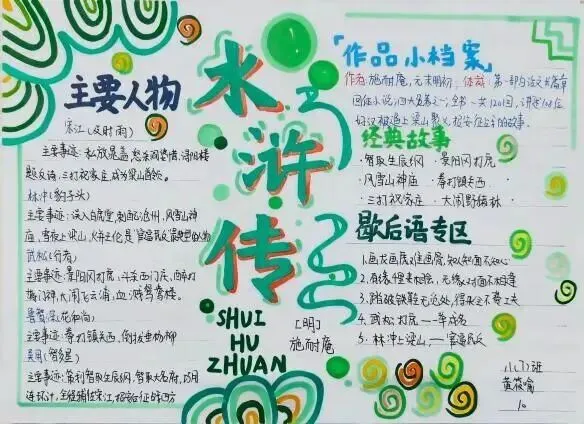 主要人物
宋江(及时雨)
主要事迹:私放晁盖,怒杀阎婆惜,浔阳楼
题反诗,三打祝家庄,成为梁山首领。
林冲(豹子头)
主要事迹:误入白虎堂,刺配沧州,风雪山神
庙,雪夜上梁山,火并王伦
武松(行者)
主要事迹:景阳冈打虎,斗杀西门庆,醉打
蒋门神,大闹飞云浦,血溅鸳鸯楼。
鲁智深(花和尚)
主要事迹:拳打镇关西,倒拔垂杨柳
吴用(智多星)
主要事迹:智取生辰纲,智取大名府,巧用
连环计,全程辅佐宋江,招安后征讨四方
水浒传
SHUI
HU
ZHUAN
[明]
施耐庵
「作品小档案」
作者:施耐庵,元末明初;体裁:第一部白话文章
回体小说,四大名著之一;全书一共120回,讲述108位
好汉被逼上梁山聚义
经典故事
·智取生辰纲 ·景阳冈打虎
·风雪山神庙 ·拳打镇关西
·三打祝家庄 ·大闹野猪林
歇后语专区
1.画龙画虎难画骨,知人知面不知心
2.有缘千里来相会,无缘对面不相逢
3.踏破铁鞋无觅处,得来全不费工夫
4.武松打虎——一举成名
5.林冲上梁山——官逼民反
八(7)班
10